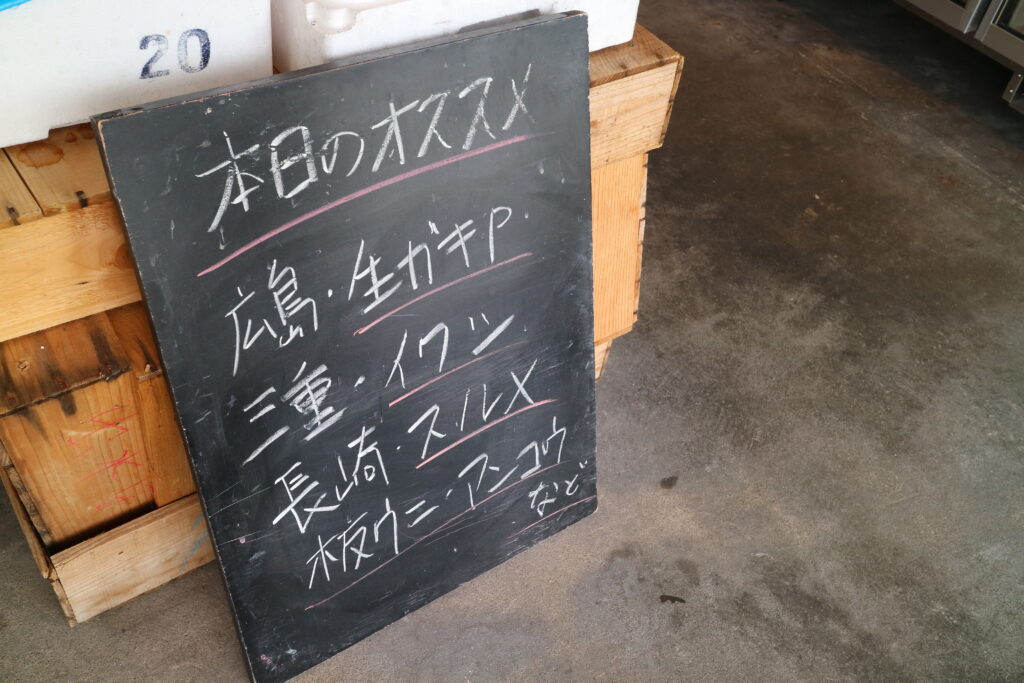 20
本日のオススメ
広島・生ガキP.
三重・イワシ
長崎・スルメ
板ウニ・アンコウ
など